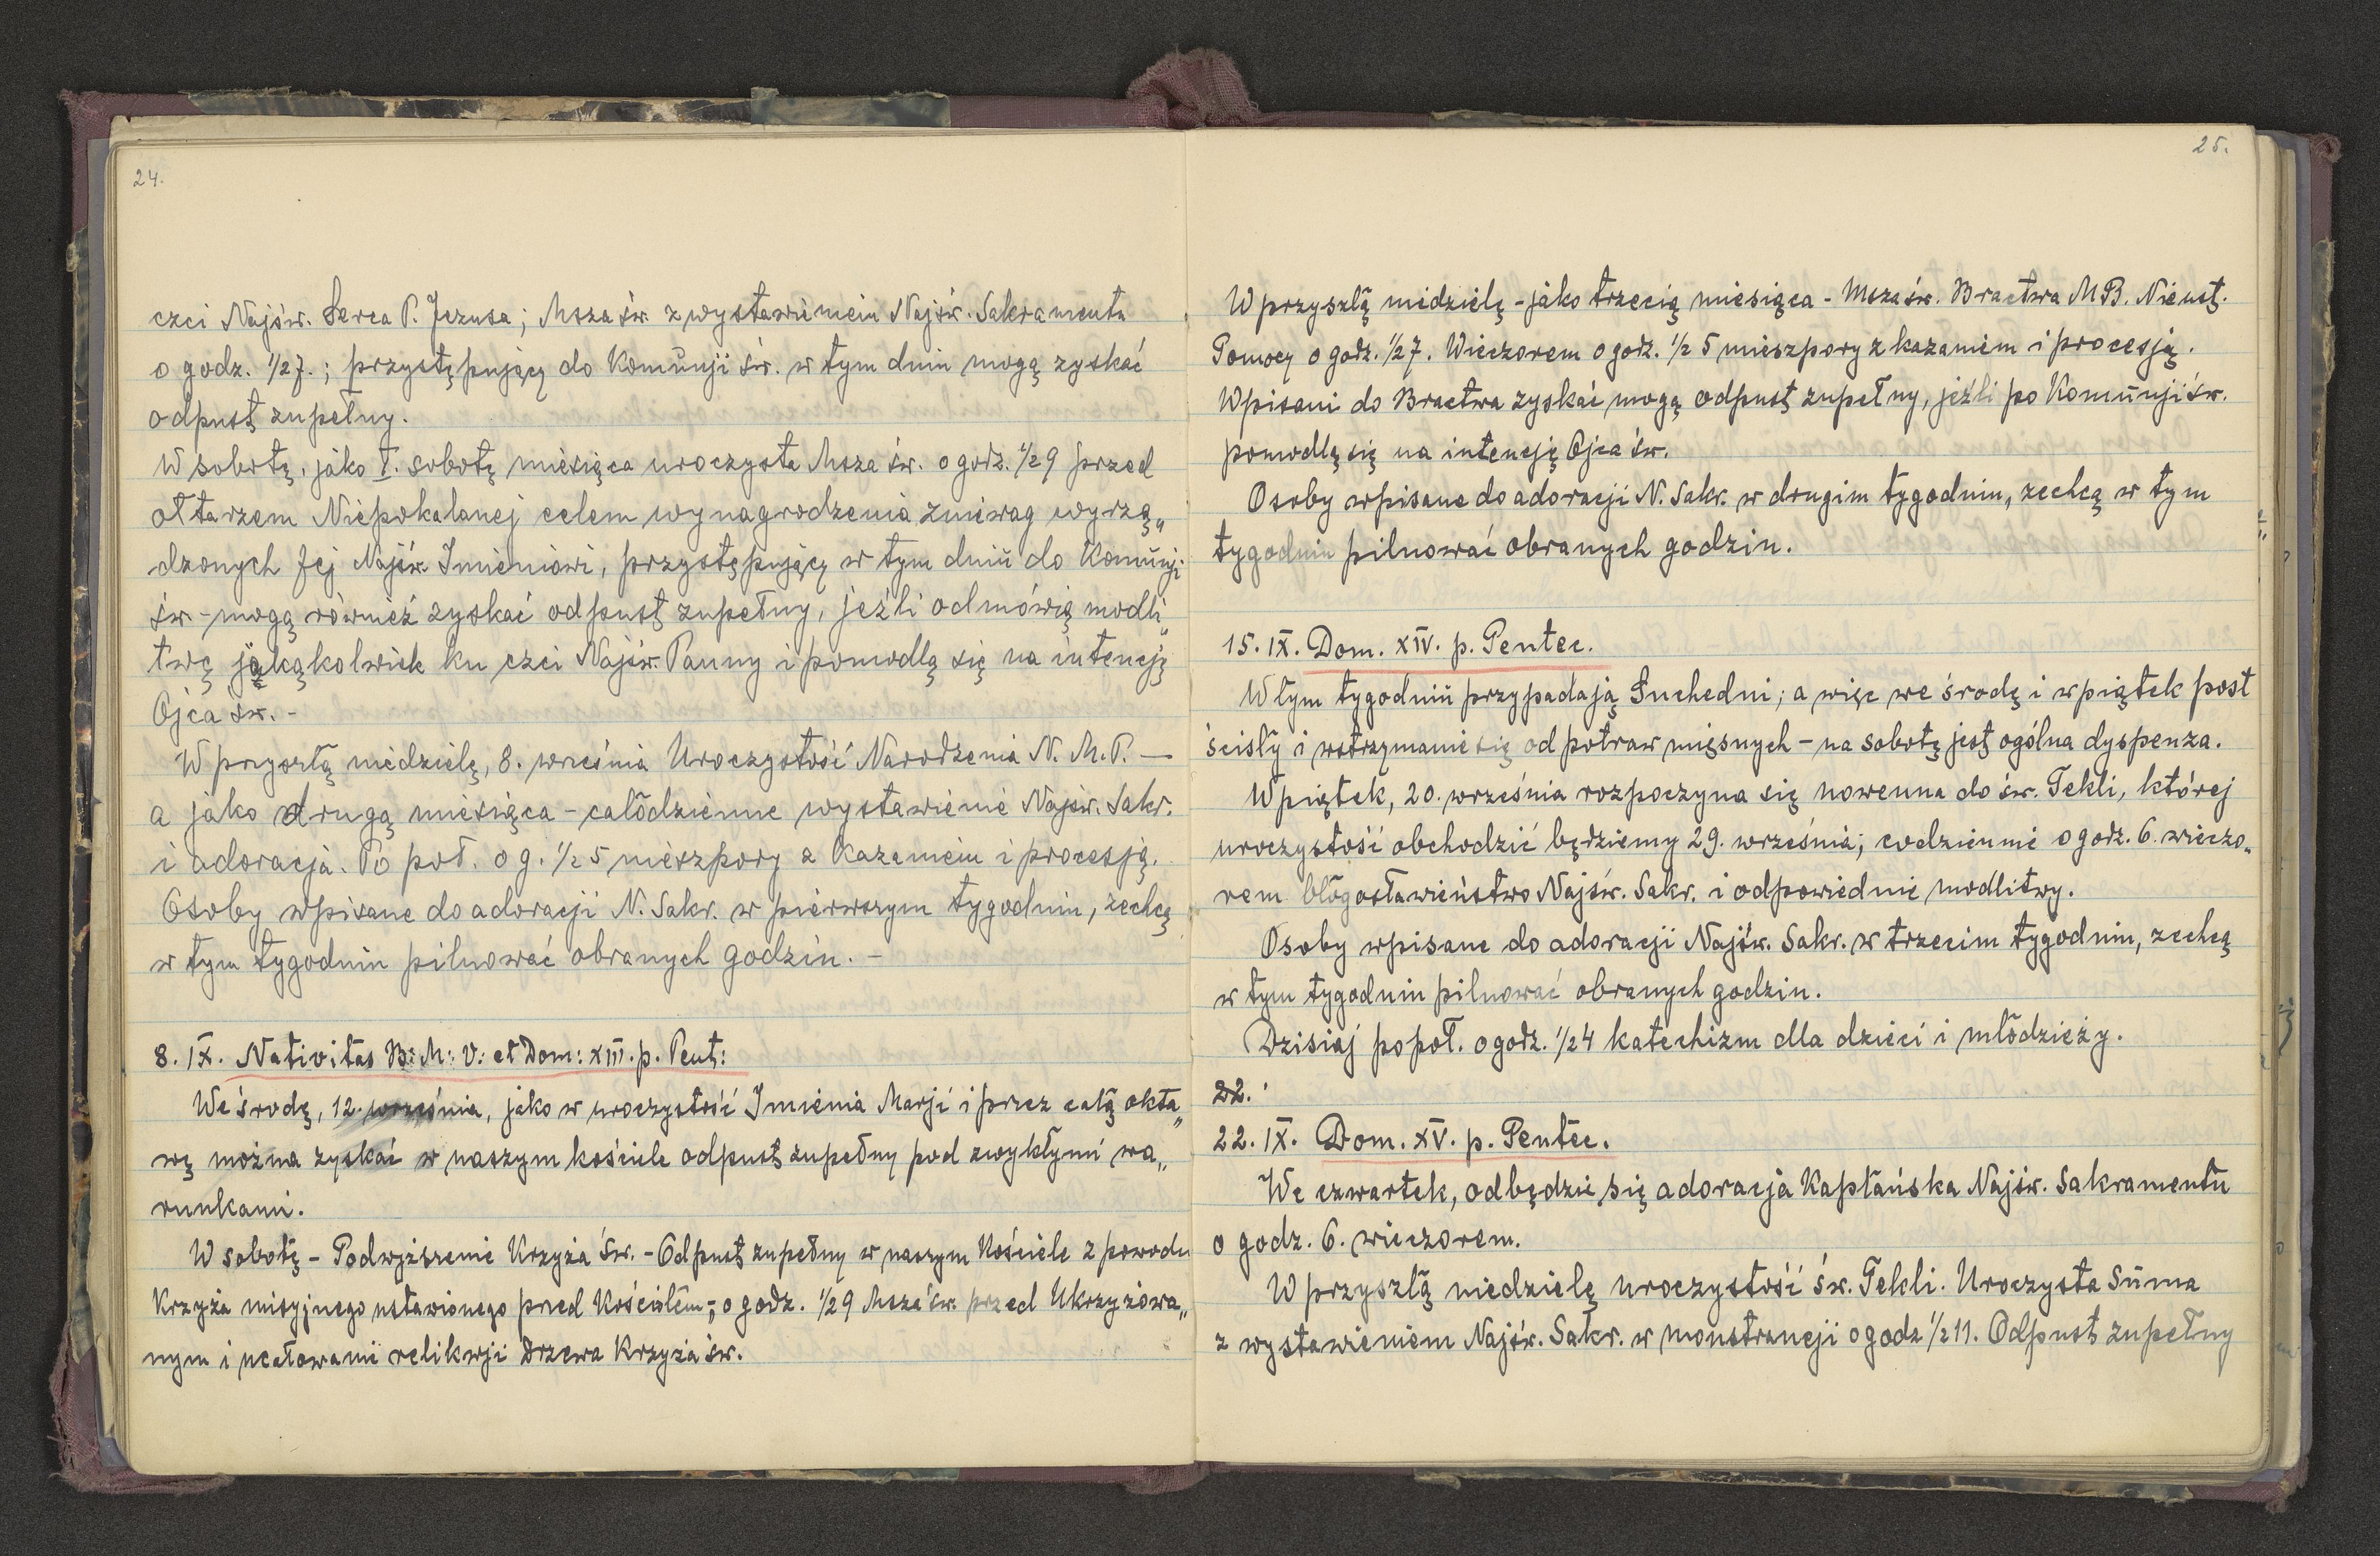 24.
czci Najśw. Serca P. Jezusa; Msza św. z wystawieniem Najśw. Sakramentu
o godz. 1/27.; przystępujący do Komunji św. w tym dniu mogą zyskać
odpust zupełny.
W sobotę, jako I. sobotę miesiąca uroczysta Msza św. o godz. 1/29 przed
ołtarzem Niepokalanej celem wynagrodzenia zniewag wyrzą„
dzonych Jej Najśw. Imieniowi, przystępujący w tym dniu do Komunji
św. - mogą również zyskać odpust zupełny, jeźli odmówią modli„
twę jakąkolwiek ku czci Najśw. Panny i pomodlą się na intencję
Ojca św. -
W przyszłą niedzielę, 8. września Uroczystość Narodzenia N. M. P. —
a jako drugą miesiąca - całodzienne wystawienie Najśw. Sakr.
i adoracja. Po poł. o g. 1/2 5 nieszpory z kazaniem i procesją.
Osoby wpisane do adoracji N. Sakr. w pierwszym tygodniu, zechcą
w tym tygodniu pilnować obranych godzin. -
8. IX. Nativitas B: M: V: et Dom: XIII. p. Pent:
We środę, 12. września, jako w uroczystość Imienia Marji i przez całą okta„
wę można zyskać w naszym kościele odpust zupełny pod zwykłymi wa„
runkami.
W sobotę - Podwyższenie Krzyża Św. - Odpust zupełny w naszym Kościele z powodu
Krzyża misyjnego ustawionego przed Kościołem -; o godz. 1/29 Msza św. przed Ukrzyżowa„
nym i ucałowanie relikwji Drzewa Krzyża św.
25.
W przyszłą niedzielę - jako trzecią miesiąca - Msza św. Bractwa M.B. Nieust.
Pomocy o godz. 1/27. Wieczorem o godz. 1/2 5 nieszpory z kazaniem i procesją.
Wpisani do Bractwa zyskać mogą odpust zupełny, jeźli po Komunji św.
pomodlą się na intencję Ojca św.
Osoby wpisane do adoracji N. Sakr. w drugim tygodniu, zechcą w tym
tygodniu pilnować obranych godzin.
15. IX. Dom. XIV. p. Pentec.
W tym tygodniu przypadają Suchedni; a więc we środę i w piątek post
ścisły i wstrzymanie się od potraw mięsnych - na sobotę jest ogólna dyspenza.
W piątek, 20. września rozpoczyna się nowenna do św. Tekli, której
uroczystość obchodzić będziemy 29. września; codziennie o godz. 6. wieczo„
rem błogosławieństwo Najśw. Sakr. i odpowiednie modlitwy.
Osoby wpisane do adoracji Najśw. Sakr. w trzecim tygodniu, zechcą
w tym tygodniu pilnować obranych godzin.
Dzisiaj popoł. o godz. 1/24 katechizm dla dzieci i młodzieży.
22.
22. IX. Dom. XV. p. Pentec.
We czwartek, odbędzie się adoracja Kapłańska Najśw. Sakramentu
o godz. 6. wieczorem.
W przyszłą niedzielę uroczystość św. Tekli. Uroczysta Suma
z wystawieniem Najśw. Sakr. w monstrancji o godz 1/2 11. Odpust zupełny